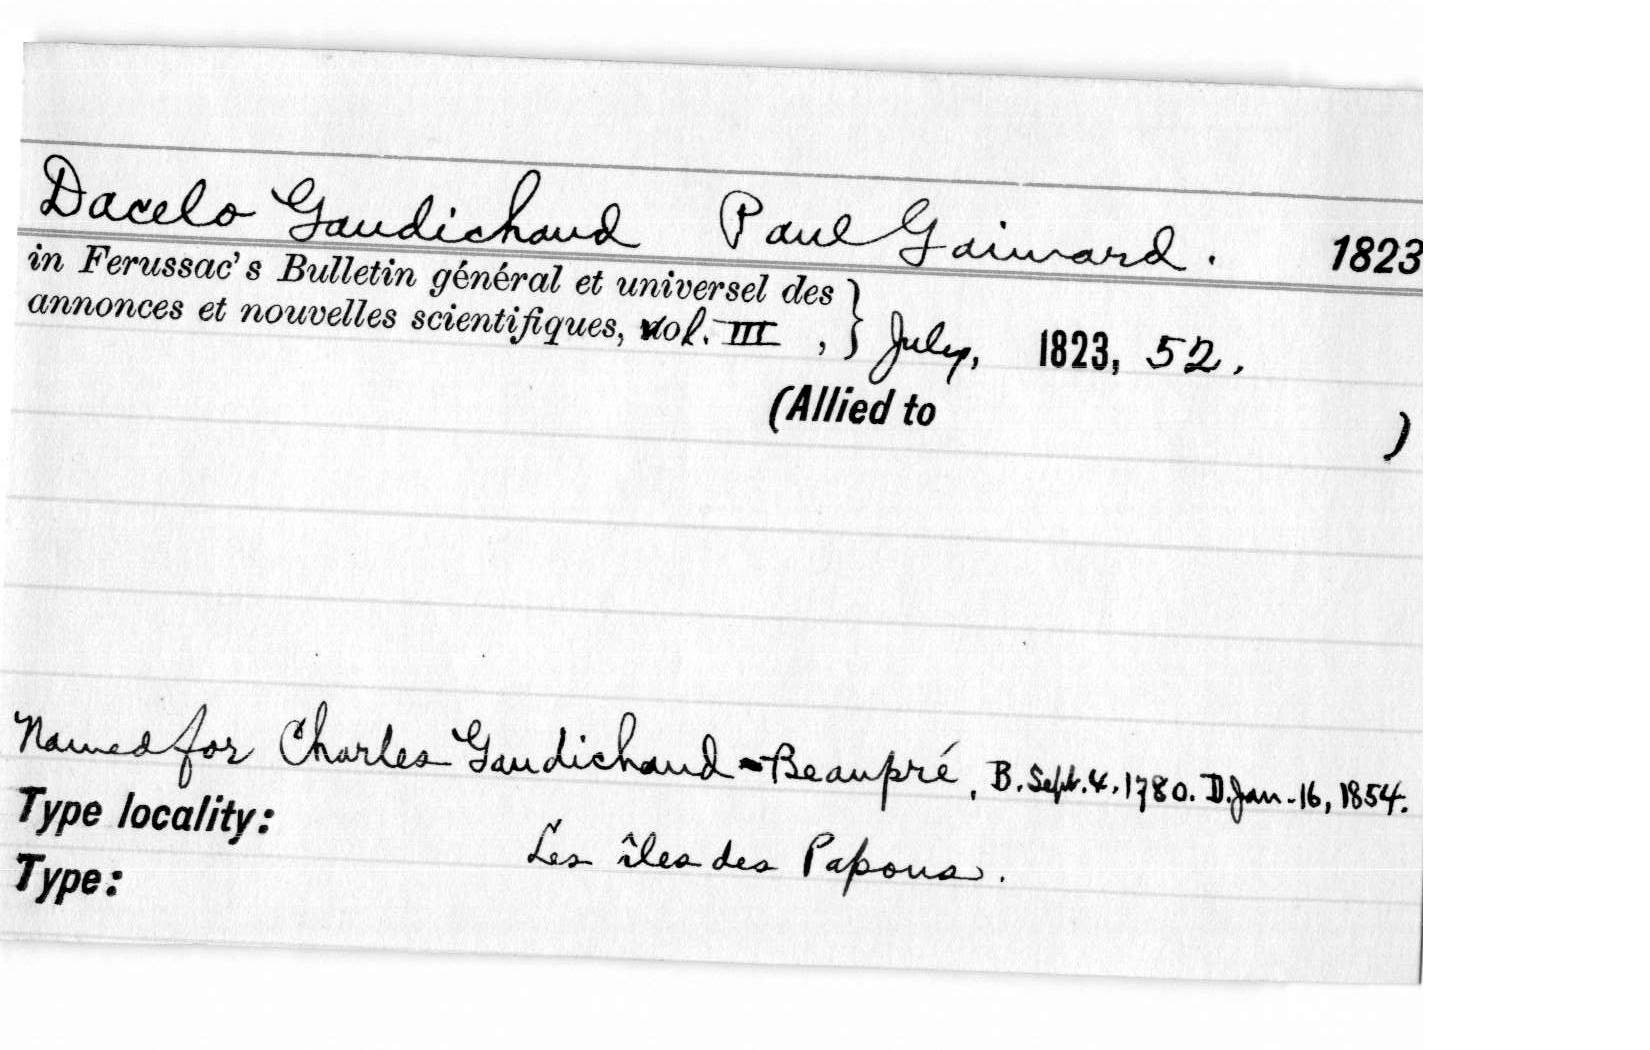 Dacelo Gaudichaud Paul Gaimard. 1823
in Ferussac's Bulletin général et universel des
annonces et nouvelles scientifiques, vol. III , } July, 1823, 52.
(Allied to )
Named for Charles Gaudichaud-Beaupré, B. Sept. 4. 1780. D. Jan. 16, 1854.
Type locality:
Les îles des Papous.
Type: